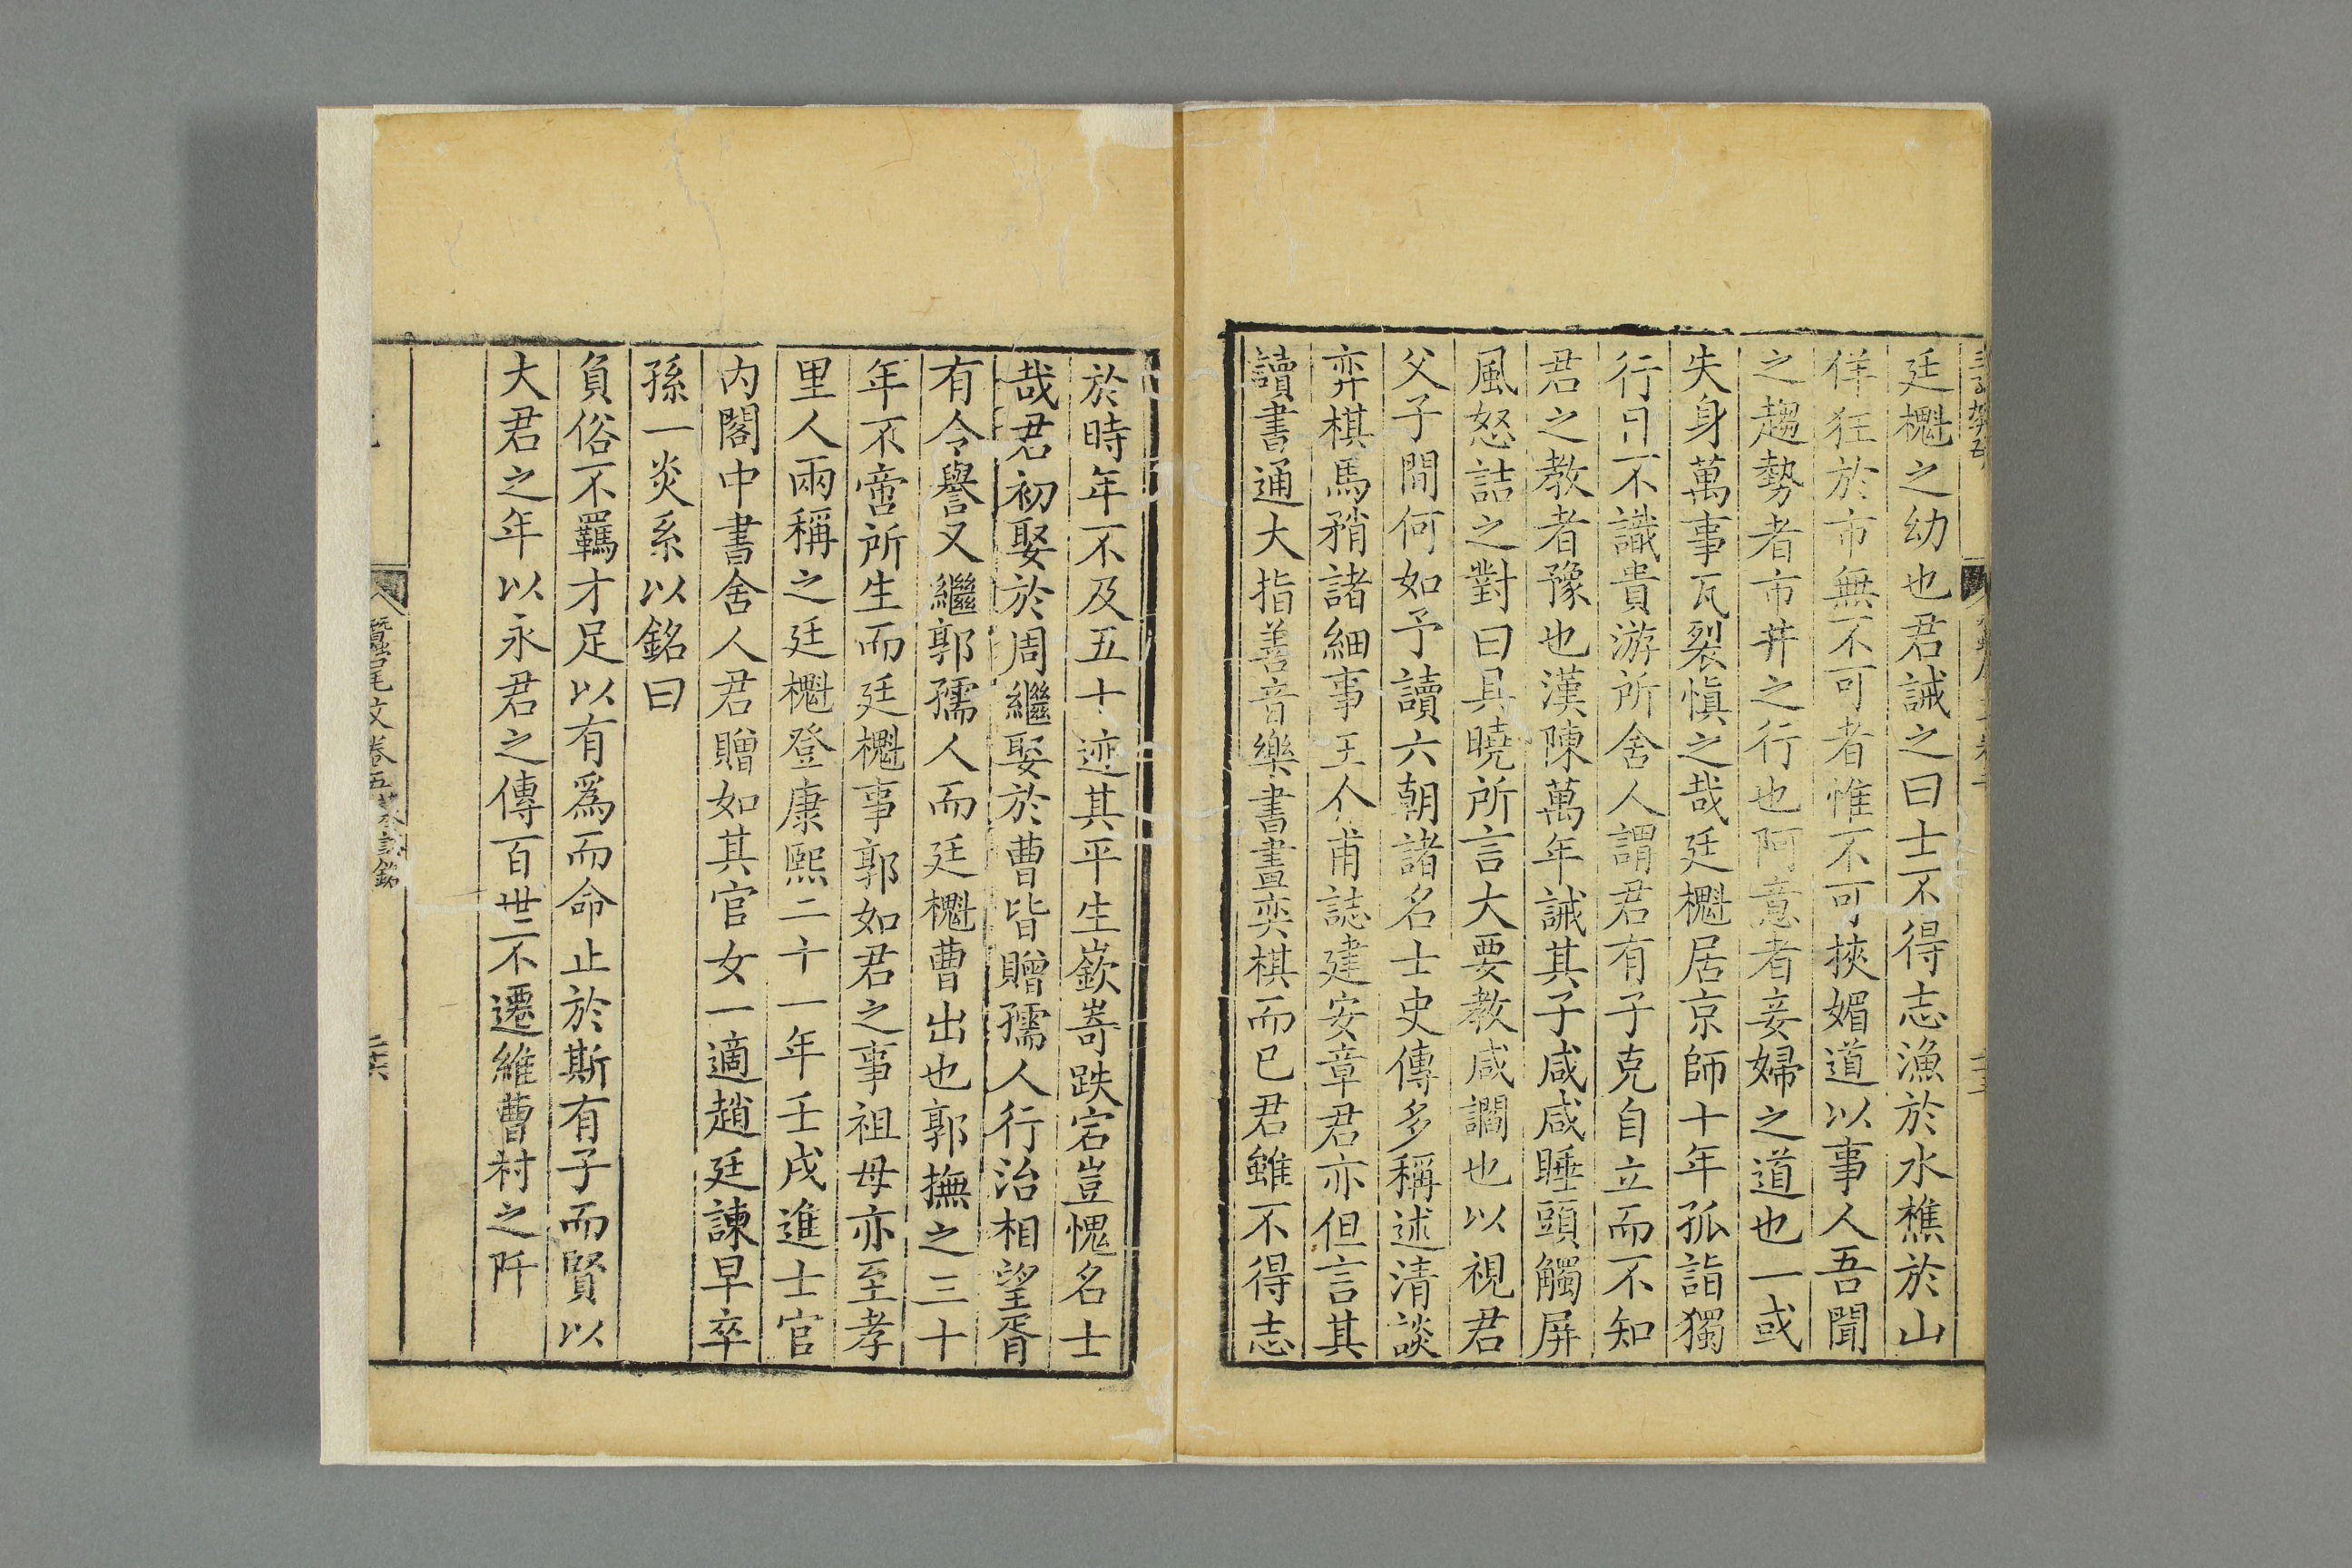 廷櫆之幼也君誡之曰士不得志漁於水樵於山
佯狂於市無不可者惟不可挾媚道以事人吾聞
之趨勢者市井之行也阿意者妾婦之道也一或
失身萬事瓦裂愼之哉廷櫆居京師十年孤詣獨
行不識貴游所舍人謂君有子克自立而不知
君之教者豫也漢陳萬年誡其子咸咸睡頭觸屏
風怒詰之對曰具曉所言大要教咸讇也以視君
父子間何如予讀六朝諸名士史傳多稱述清談
弈棋馬矟諸細事王介甫誌建安章君亦但言其
讀書通大指善音樂書畫奕棋而已君雖不得志
於時年不及五十迹其平生嶔嵜跌宕豈愧名士
哉君初娶於周繼娶於曹皆贈孺人行治相望胥
有令譽又繼郭孺人而廷櫆曹出也郭撫之三十
年不啻所生而廷櫆事郭如君之事祖母亦至孝
里人兩稱之廷櫆登康熙二十一年壬戌進士官
内閣中書舍人君贈如其官女一適趙廷諫早卒
孫一炎系以銘曰
負俗不羈才足以有爲而命止於斯有子而賢以
大君之年以永君之傳百世不遷維曹村之阡
蠶尾文卷五
二十六